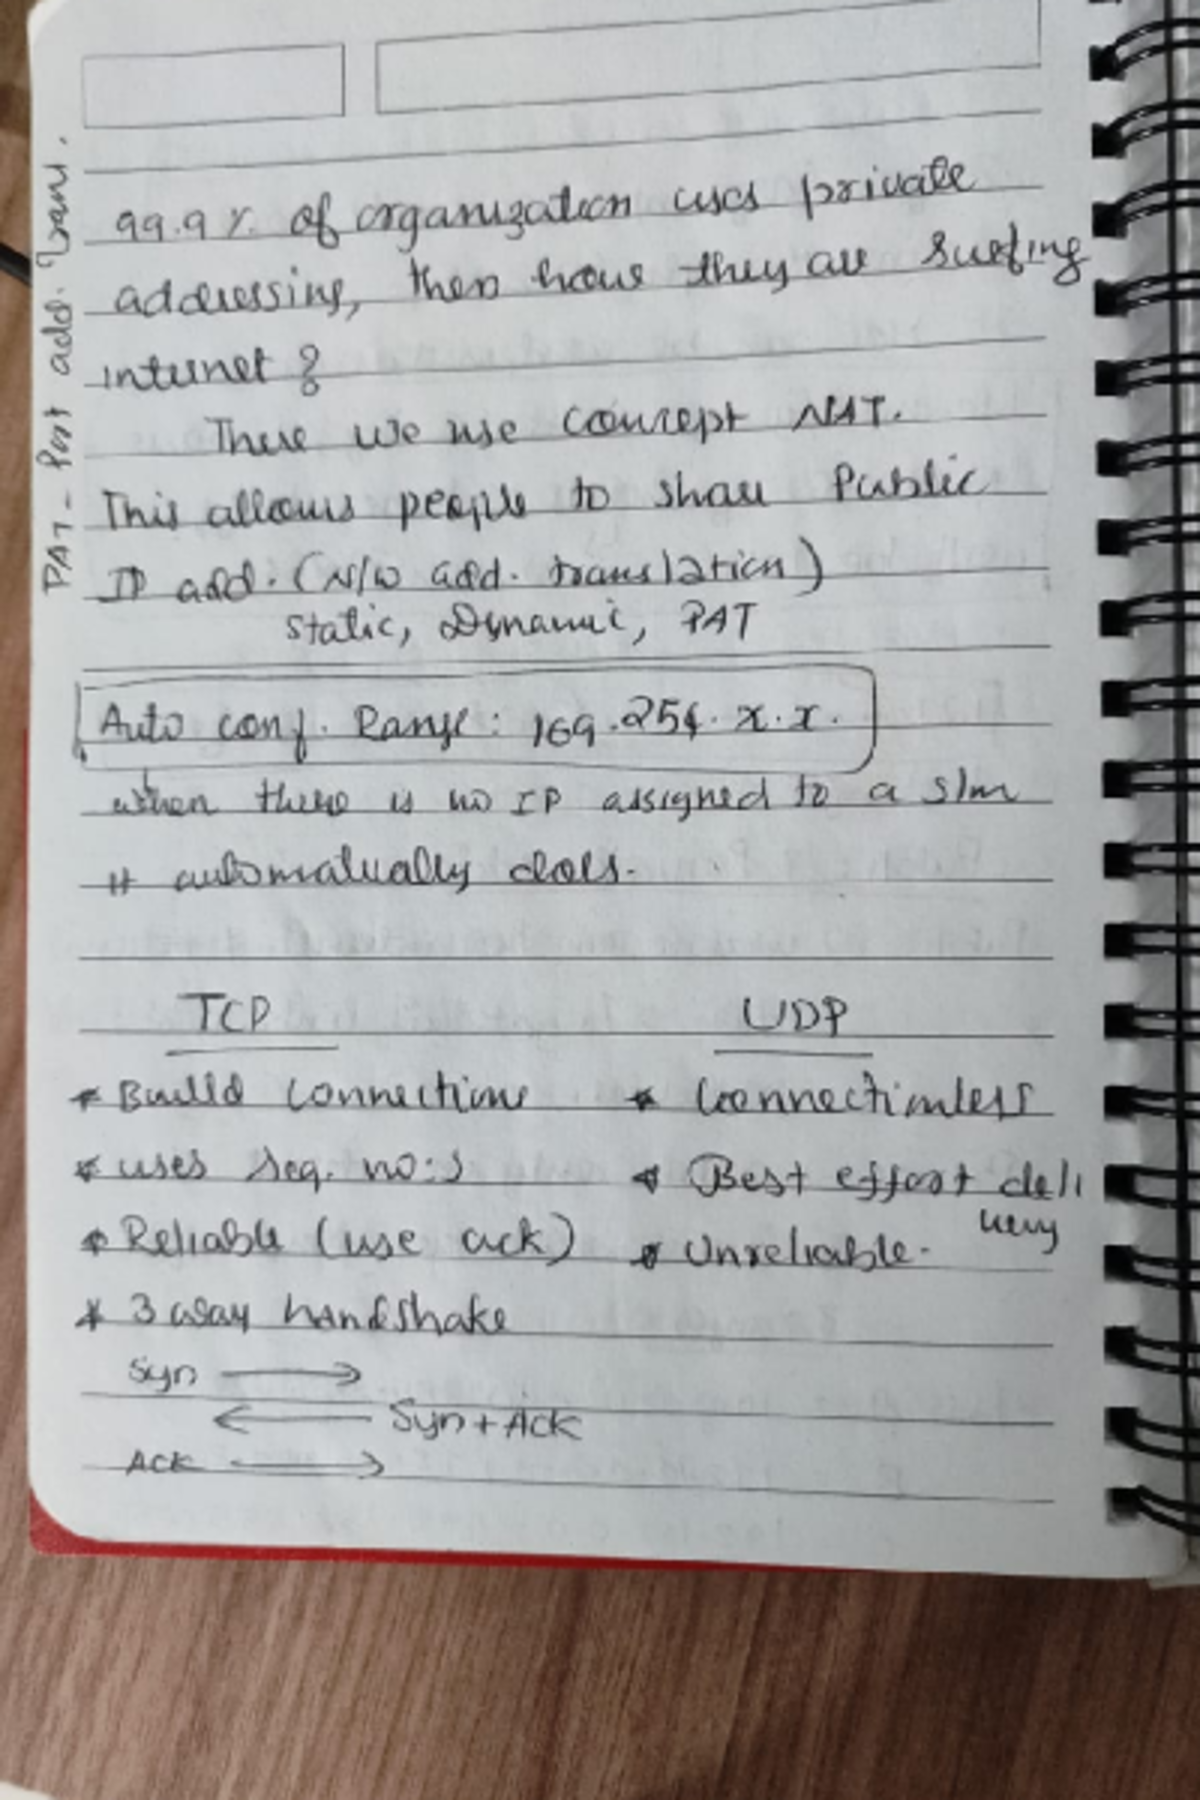 PAT - Port add. trans.
99.9 % of organization uses private
addressing, then how they are surfing
internet ?
There we use concept NAT.
This allows people to share Public
IP add. (N/W add. translation)
Static, Dynamic, PAT
Auto conf. Range : 169.254.x.x.
when there is no IP assigned to a s/m
it automatically does.
TCP UDP
* Build connections * Connectionless
* uses seq. no:s * Best effort deli
very
* Reliable (use ack) * Unreliable.
* 3 way handshake
Syn →
← Syn + Ack
Ack →